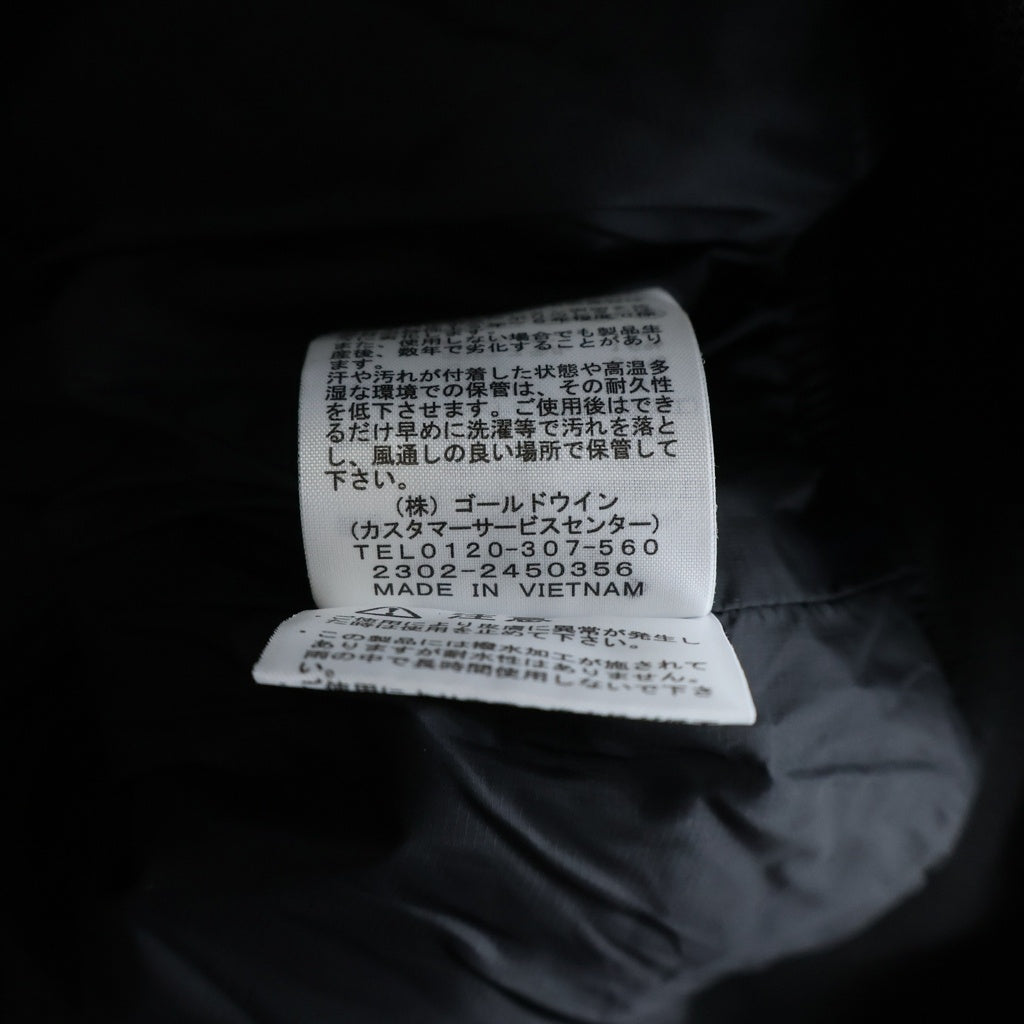 また、使用しない場合でも製品生
産後、数年で劣化することがあり
ます。
汗や汚れが付着した状態や高温多
湿な環境での保管は、その耐久性
を低下させます。ご使用後はでき
るだけ早めに洗濯等で汚れを落と
し、風通しの良い場所で保管して
下さい。
(株) ゴールドウイン
(カスタマーサービスセンター)
TEL0120-307-560
2302-2450356
MADE IN VIETNAM
注意
・ご使用により皮膚に異常が発生し
た時は使用を止めて下さい。
・この製品には撥水加工が施されて
ありますが耐水性はありません。
雨の中で長時間使用しないで下さ
い。
ご使用により